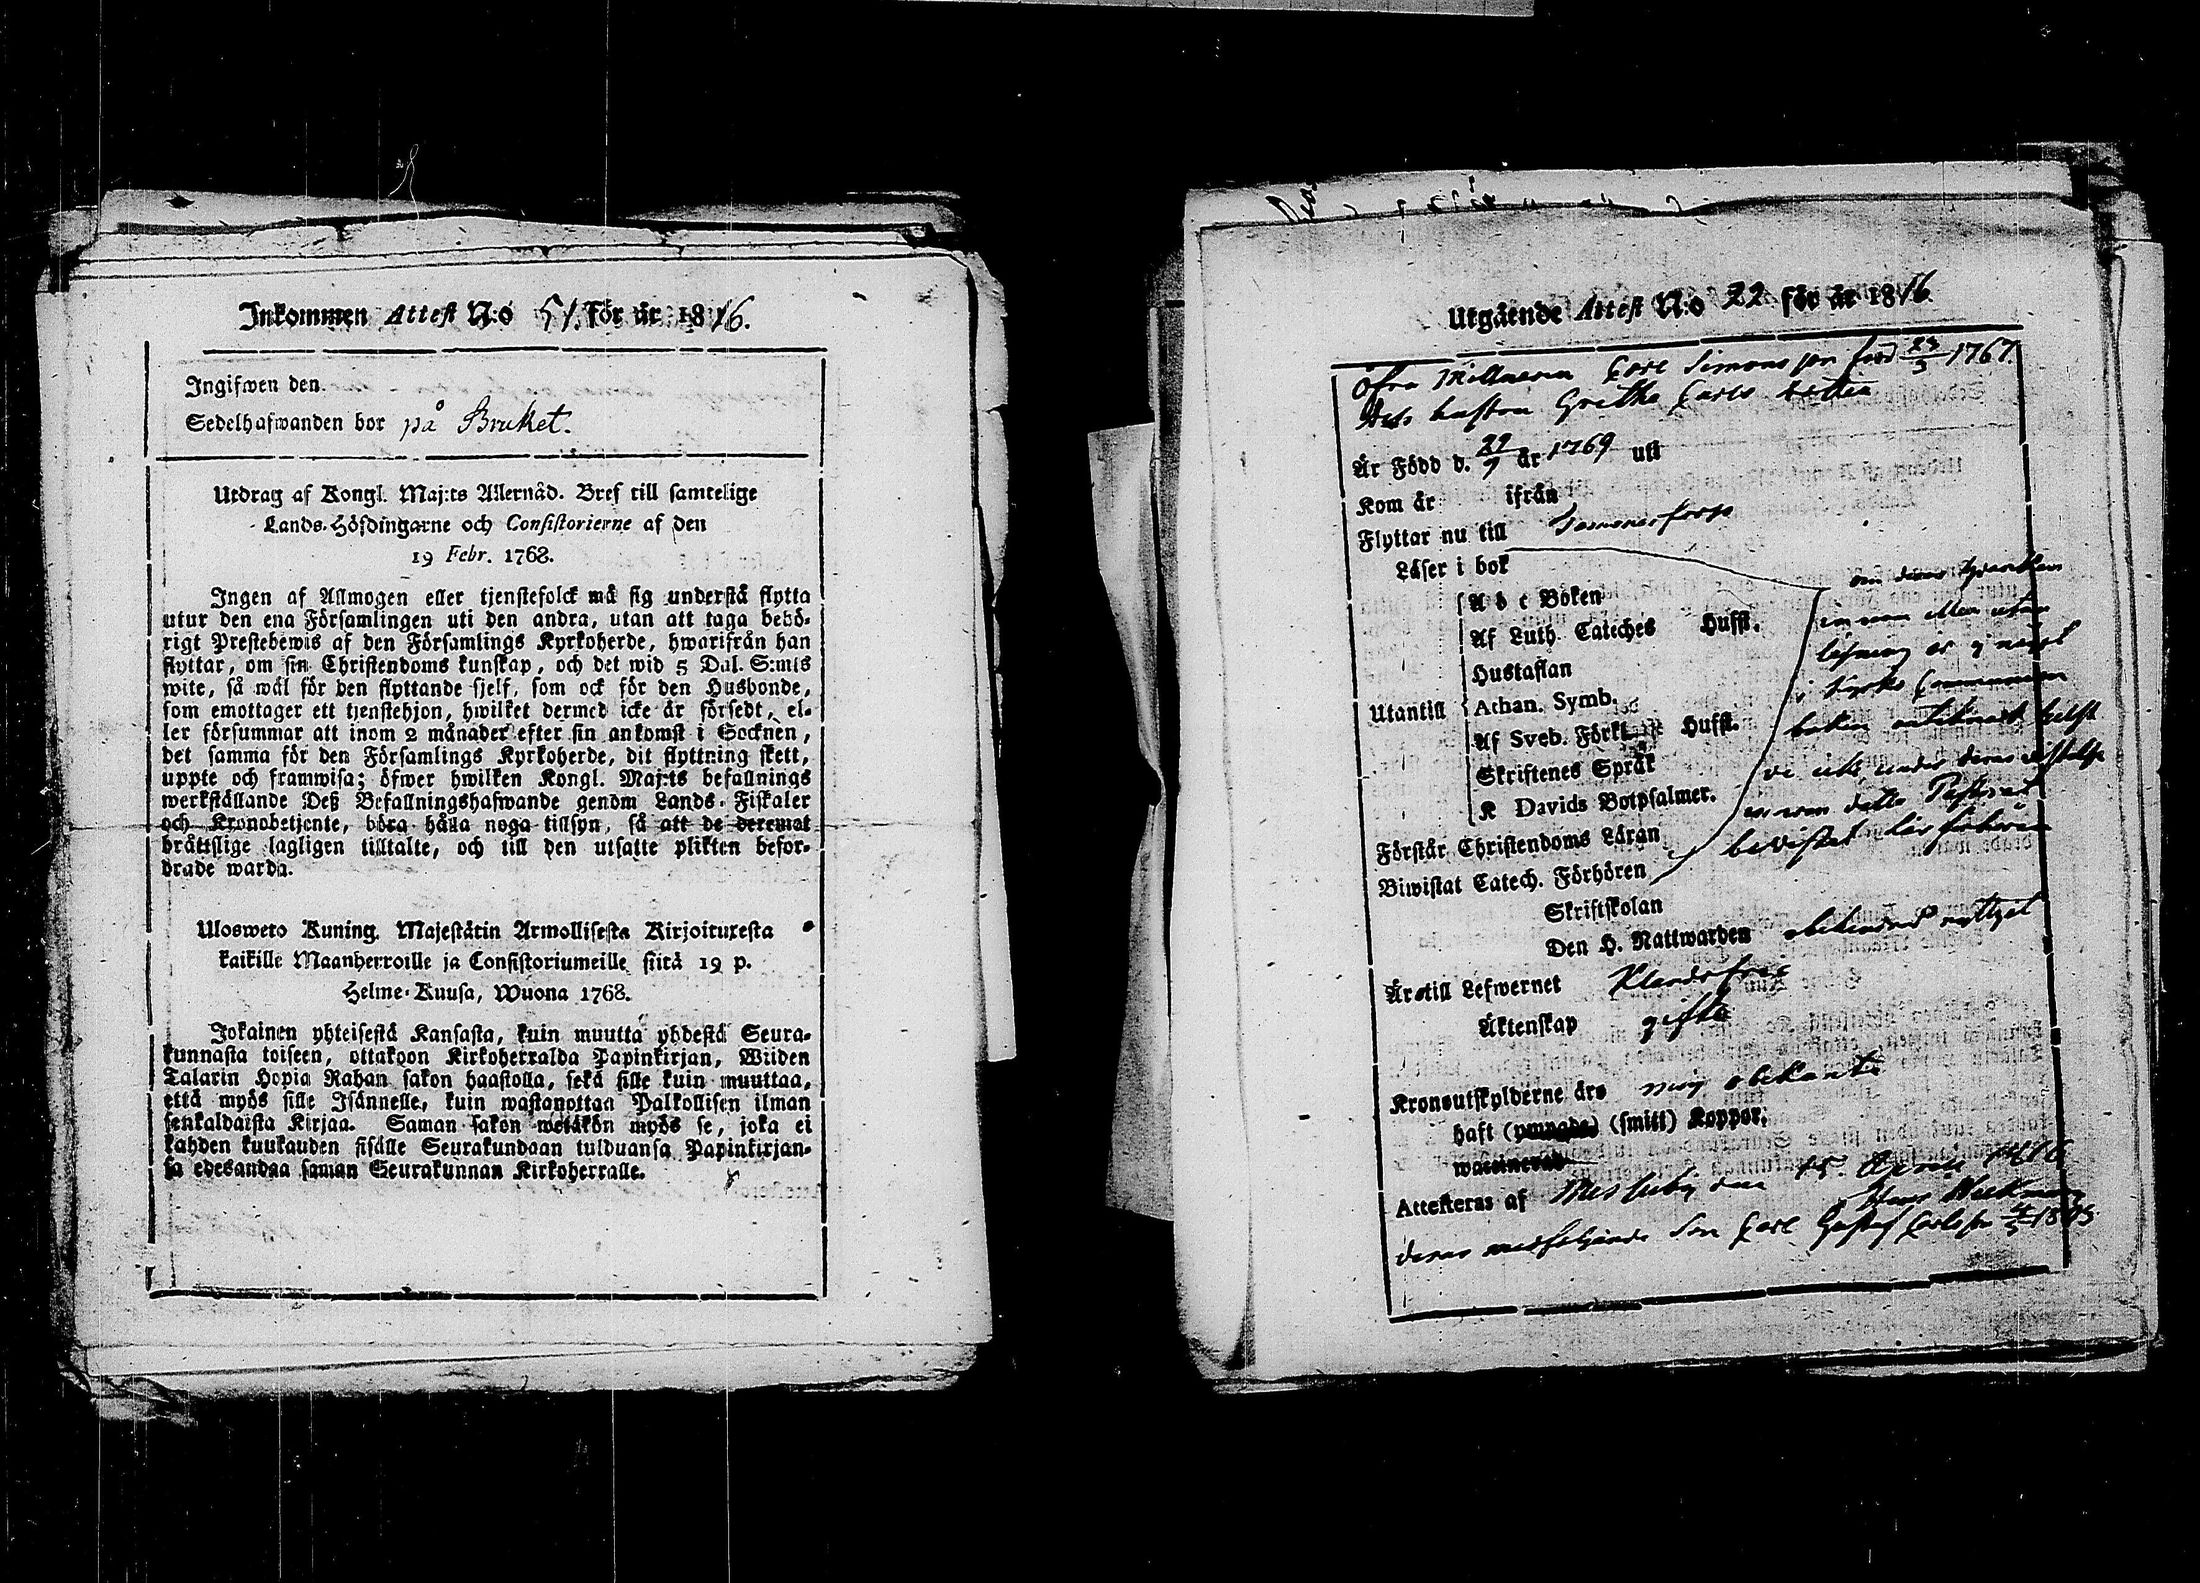 Inkommen Attest N:o 51. För år 1816.
Ingifwen den
Sedelhafwanden bor på Bruket.
Utdrag af Kongl. Maj:ts Allernåd. Bref till samtelige
Lands-Höfdingarne och Consistorierne af den
19 Febr. 1768.
Ingen af Allmogen eller tjenstefolck må sig understå flytta
utur den ena Församlingen uti den andra, utan att taga behö-
rigt Prestebewis af den Församlings Kyrkoherde, hwarifrån han
flyttar, om sin Christendoms kunskap, och det wid 5 Dal. S:mts
wite, så wäl för den flyttande sjelf, som ock för den Husbonde,
som emottager ett tjenstehjon, hwilket dermed icke är försedt, el-
ler försummar att inom 2 månader efter sin ankomst i Socknen,
det samma för den Församlings Kyrkoherde, dit flyttning skett,
uppte och framwisa; öfwer hwilken Kongl. Maj:ts befallnings
werkställande Deß Befallningshafwande genom Lands-Fiskaler
och Kronobetjente, böra hålla noga tillsyn, så att de deremot
bråttslige lagligen tilltalte, och till den utsatte plikten befor-
drade warda.
Ulosweto Kuning. Majestätin Armollisesta Kirjoituxesta
kaikille Maanherroille ja Consistoriumeille siitä 19 p.
Helme-Kuusa, Wuona 1768.
Jokainen yhteisestä Kansasta, kuin muutta yhdestä Seura-
kunnasta toiseen, ottakoon Kirkoherralda Papinkirjan, Wiiden
Talarin Hopia Rahan sakon haastolla, sekä sille kuin muuttaa,
että myös sille Isännelle, kuin wastanottaa Palkollisen ilman
senkaldaista Kirjaa. Saman sakon wetäkön myös se, joka ei
kahden kuukauden sisälle Seurakundaan tulduansa Papinkirjan-
sa edesandaa saman Seurakunnan Kirkoherralle.
Utgående Attest N:o 22 för år 1816
Carl Simonsson född 23/3 1767.
Dess hustru Gretha Carls dotter
Är Född d. 29/9 år 1769 uti
Kom år ifrån
Flyttar nu till
Läser i bok
A b c Boken
Af Luth. Cateches Hufst.
Hustaflan
Utantill Athan. Symb.
Af Sveb. Förkl. Hufst.
Skriftenes Språk
K Davids Botpsalmer.
Förstår Christendoms Läran
Biwistat Catech. Förhören
Skriftskolan
Den H. Nattwarden obehindrad nyttjat
Är till Lefwernet Klanderfrie
Äktenskap gifte
Kronoutskylderne äro mig obekante
haft (ympade) (smitt) Koppor.
waccinerad
Attesteras af Messuby den 15. 1816
deras medföljande Son Carl Gustaf Carlsson